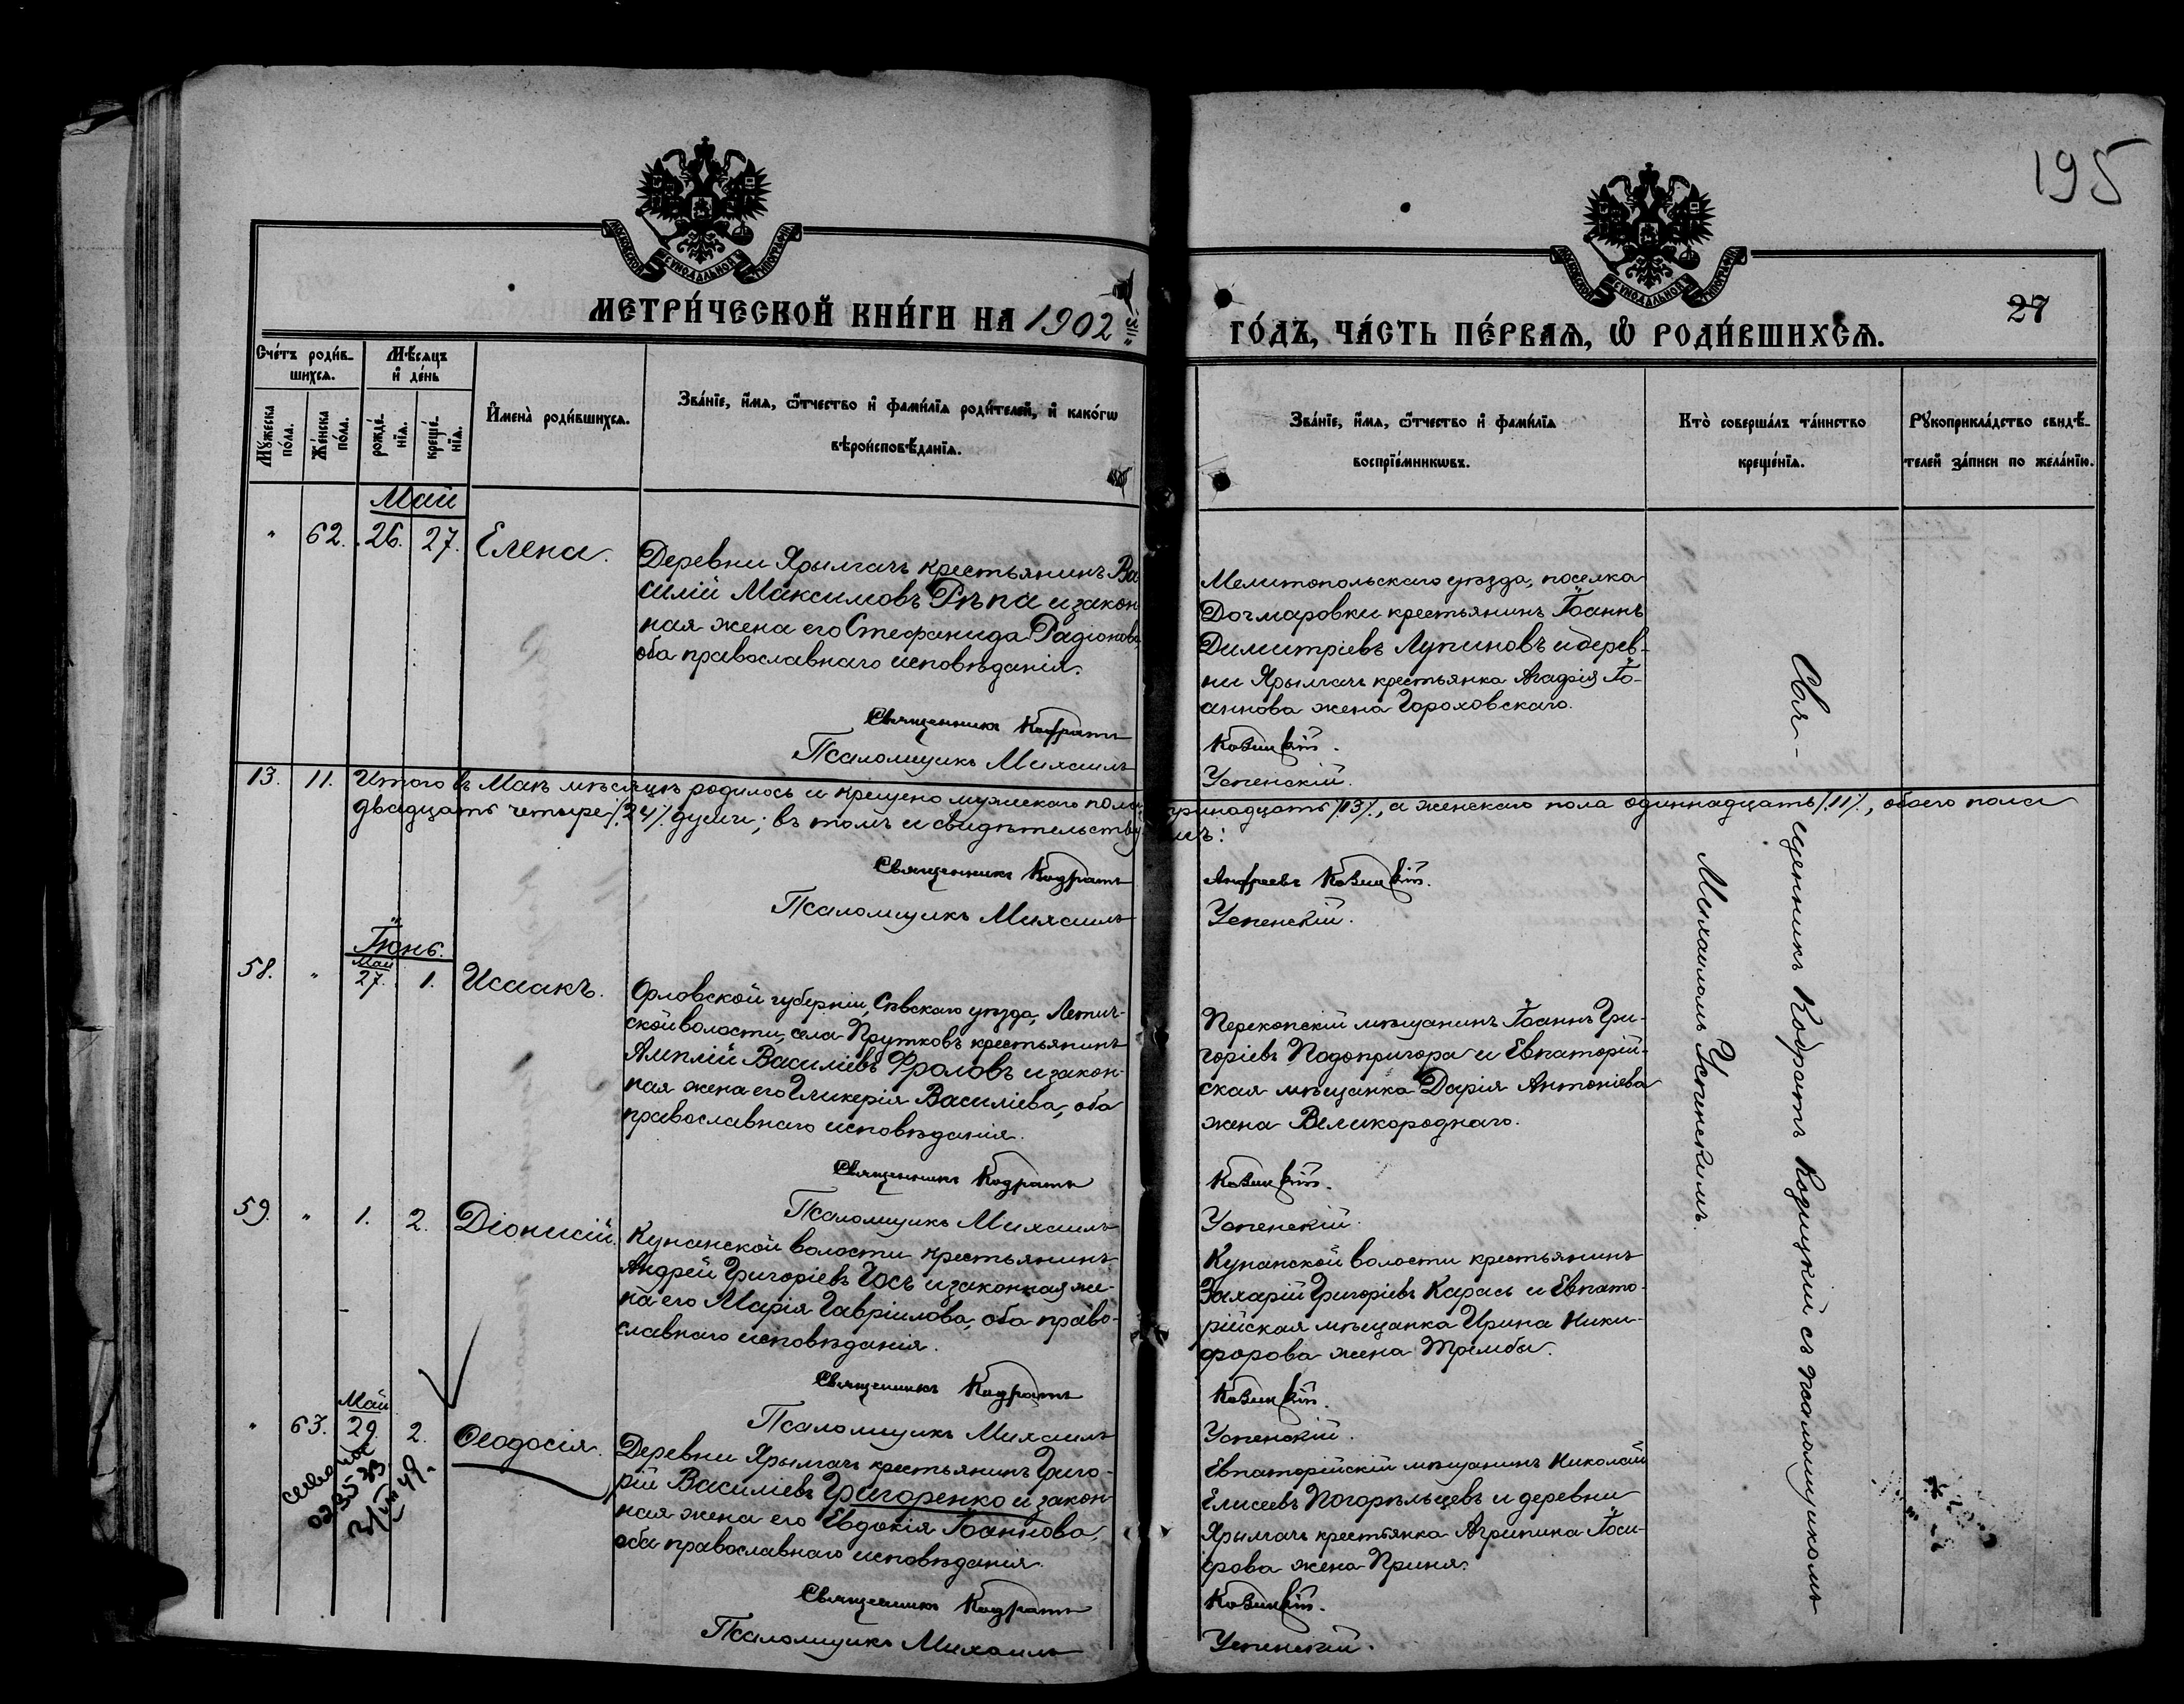 195
МОСКОВСКОЙ СѴНОДАЛЬНОЙ ТИПОГРАФІИ
МОСКОВСКОЙ СѴНОДАЛЬНОЙ ТИПОГРАФІИ
27
МЕТРИ́ЧЕСКОЙ КНИ́ГИ НА 1902
ГО́ДЪ, ЧА́СТЬ ПЕ́РВАѦ, Ѡ҆ РОДИ́ВШИХСѦ.
Сче́тъ роди́в-
шихсѧ.
Мѣ́сѧцъ
и҆ де́нь
Мꙋ́жеска
по́ла.
Же́нска
по́ла.
рожде́-
нїѧ.
креще́-
нїѧ.
И҆мена̀ роди́вшихсѧ.
Зва́нїе, и҆́мѧ, ѻ҆́тчество и҆ фами́лїѧ роди́телей, и҆ како́гѡ
вѣроисповѣ́данїѧ.
Зва́нїе, и҆́мѧ, ѻ҆́тчество и҆ фами́лїѧ
воспрїе́мникѡвъ.
Кто̀ соверша́лъ та́инство
креще́нїѧ.
Рꙋкоприкла́дство свидѣ́-
телей за́писи по жела́нїю.
Май
" 62. 26. 27. Елена.
Деревни Ярылгачъ крестьянинъ Ва
силій Максимовъ Рѣпа и закон
ная жена его Стефанида Радіонова,
оба православнаго исповѣданія.
Священникъ Кодратъ
Псаломщикъ Михаилъ
Мелитопольскаго уѣзда, поселка
Догмаровки крестьянинъ Іоаннъ
Димитріевъ Лупиновъ и дерев-
ни Ярылгачъ крестьянка Агафія Іо-
аннова жена Гороховскаго.
Козицкій.
Успенскій.
13. 11. Итого въ Маѣ мѣсяцѣ родилось и крещено мужескаго пола тринадцать /.13/., а женскаго пола одиннадцать /.11/., обоего пола
двадцать четыре /.24/. души; въ томъ и свидѣтельствуемъ:
Священникъ Кодратъ
Андреевъ Козицкій.
Псаломщикъ Михаилъ
Успенскій.
Іюнь.
58. " Май 27. 1. Исаакъ.
Орловской губерніи, Сѣвскаго уѣзда,
ской волости, села Прутковъ крестьянинъ
Василіевъ Фроловъ и закон-
ная жена его Гликерія Василіева, оба
православнаго исповѣданія.
Священникъ Кодратъ
Псаломщикъ Михаилъ
Перекопскій мѣщанинъ Іоаннъ Гри-
горіевъ Подопригора и Евпаторій-
ская мѣщанка Дарія Антоніева
жена Великороднаго.
Козицкій.
Успенскій.
59. " 1. 2. Діонисій.
Кунанской волости крестьянинъ
Андрей Григоріевъ Гось и законная же-
на его Марія Гавріилова, оба право-
славнаго исповѣданія.
Священникъ Кодратъ
Псаломщикъ Михаилъ
Кунанской волости крестьянинъ
Захарій Григоріевъ Карась и Евпато-
рійская мѣщанка Ирина Ники-
форова жена Трембы.
Козицкій.
Успенскій.
" 63. Май 29. 2. Ѳеодосія.
Деревни Ярылгачъ крестьянинъ Григо-
рій Василіевъ Григоренко и закон-
ная жена его Евдокія Іоаннова,
оба православнаго исповѣданія.
Священникъ Кодратъ
Псаломщикъ Михаилъ
Евпаторійскій мѣщанинъ Николай
Елисеевъ Погорѣльцевъ и деревни
Ярылгачъ крестьянка Агрипина Іоси-
фова жена Приня.
Козицкій.
Успенскій.
Свя-
щенникъ Кодратъ Козицкій съ псаломщикомъ
Михаиломъ Успенскимъ.